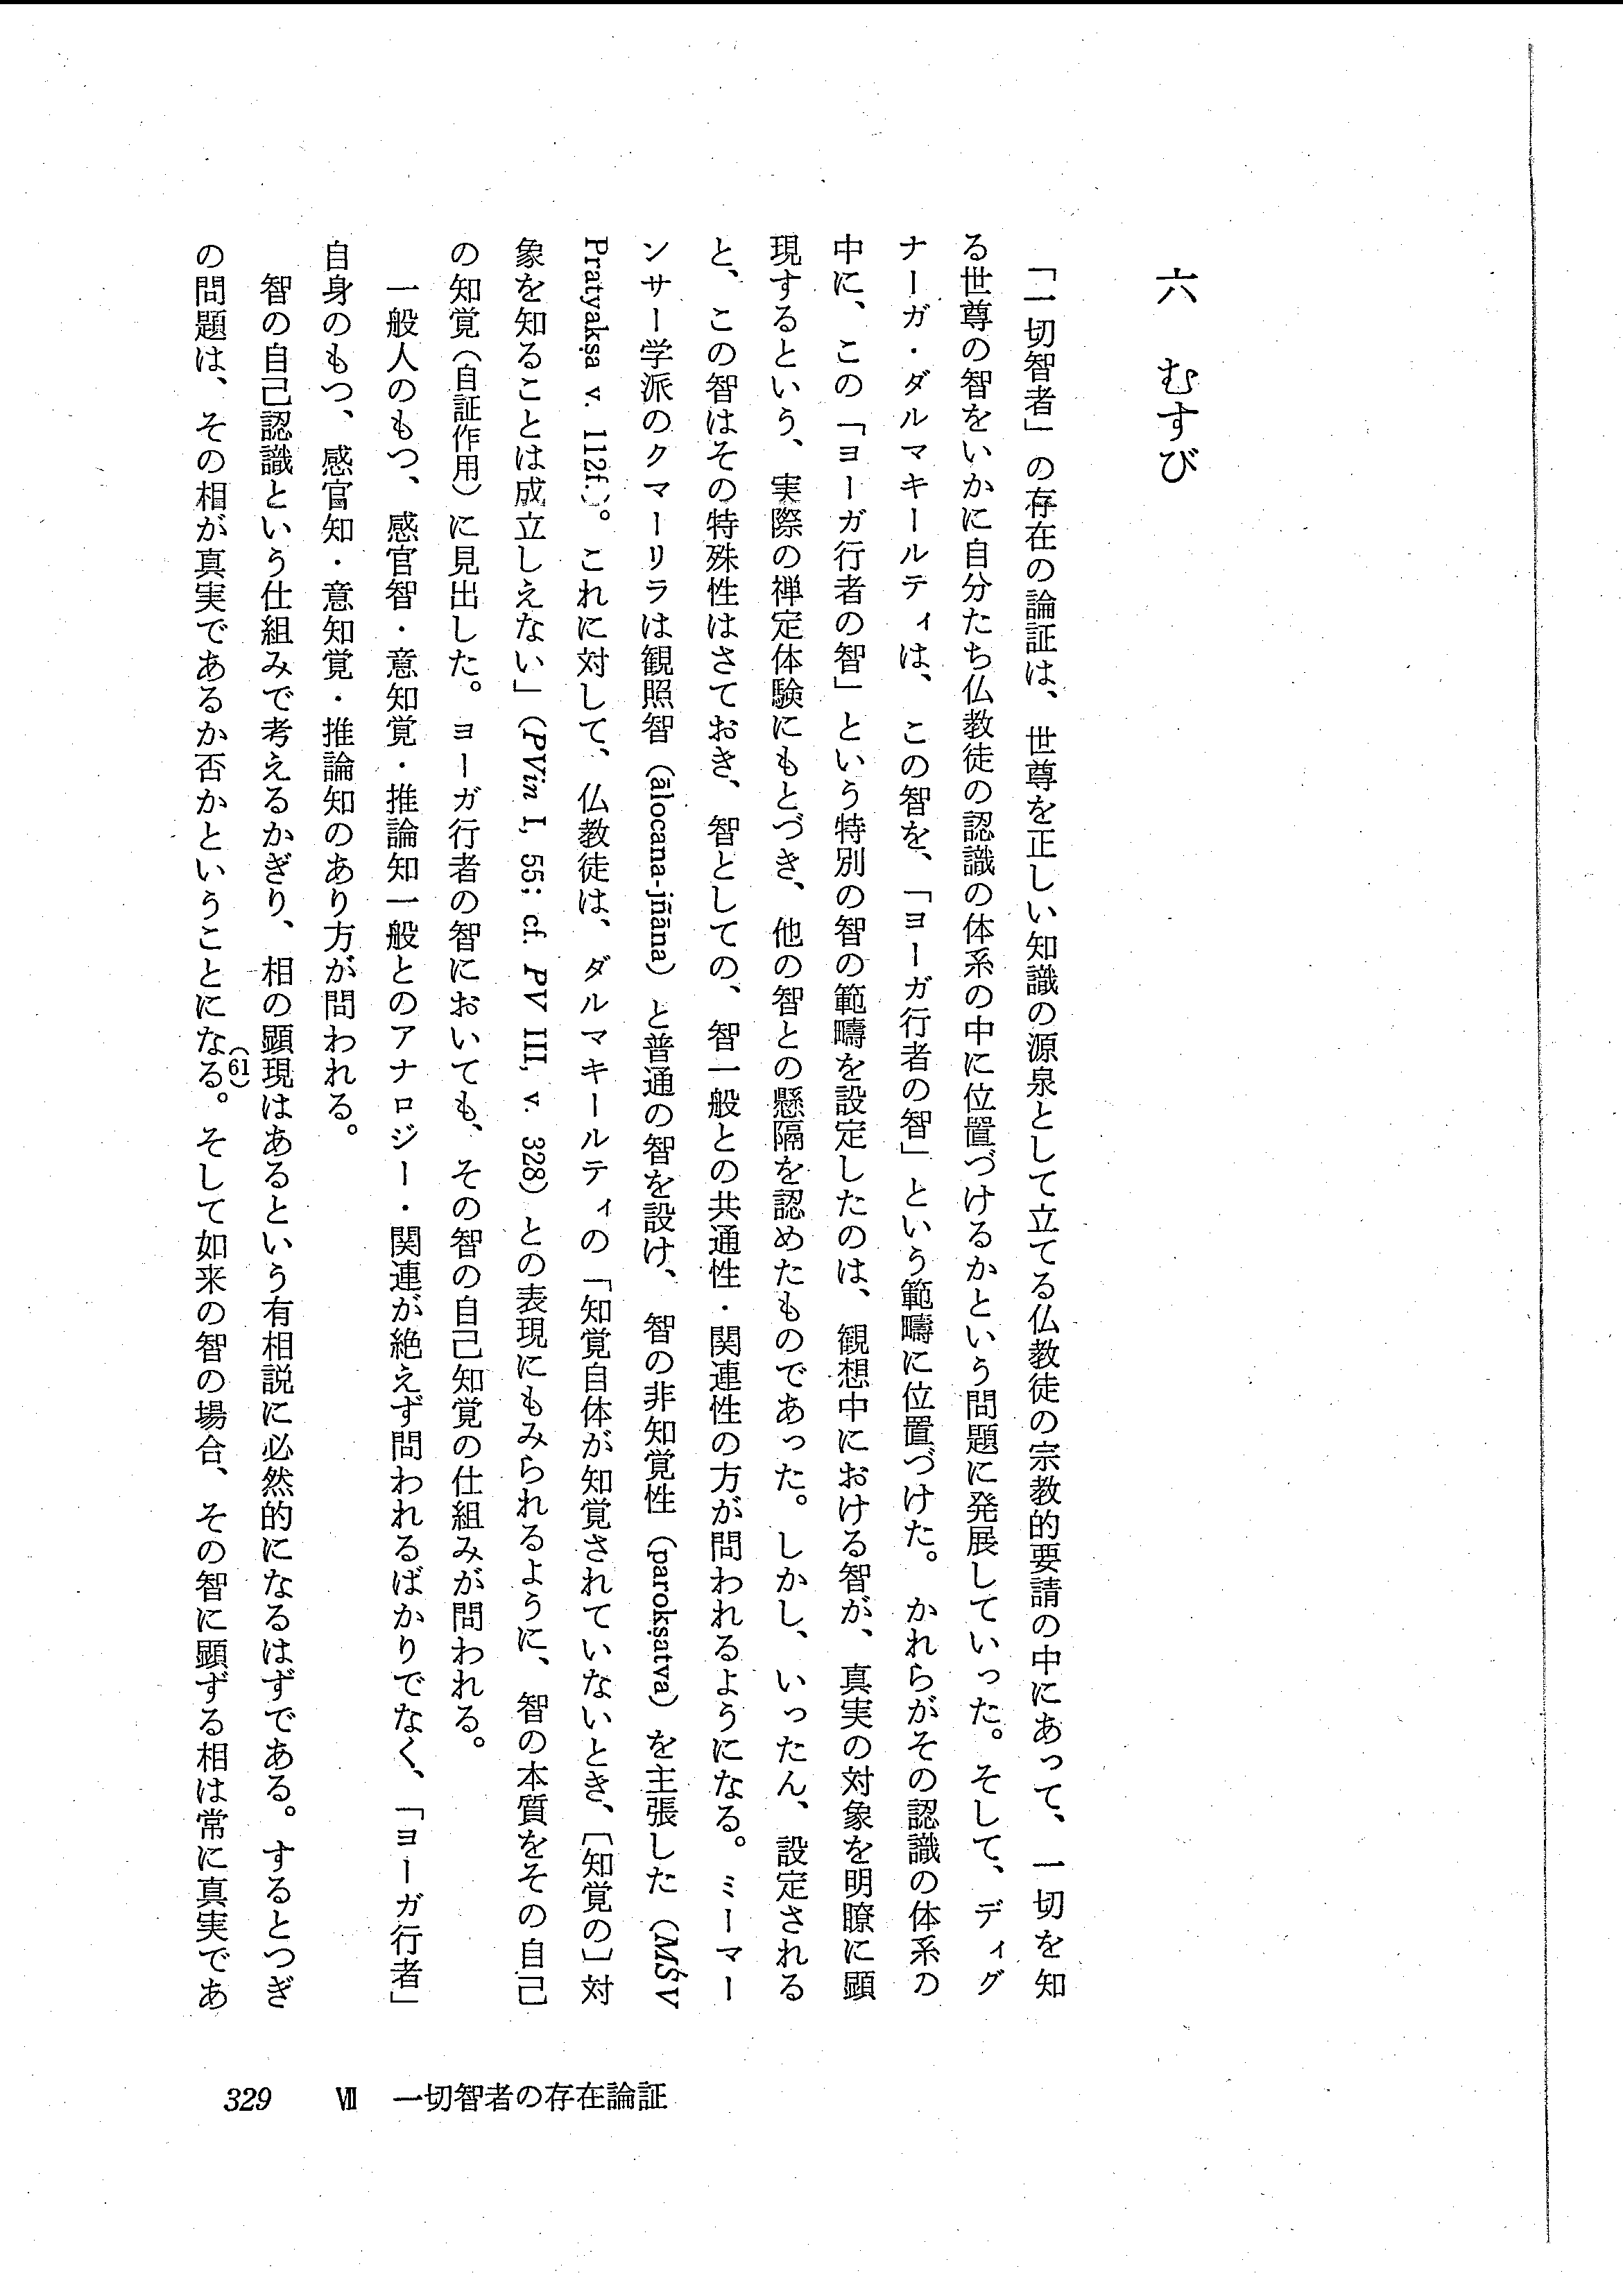 六　むすび
「一切智者」の存在の論証は、世尊を正しい知識の源泉として立てる仏教徒の宗教的要請の中にあって、一切を知
る世尊の智をいかに自分たち仏教徒の認識の体系の中に位置づけるかという問題に発展していった。そして、ディグ
ナーガ・ダルマキールティは、この智を、「ヨーガ行者の智」という範疇に位置づけた。かれらがその認識の体系の
中に、この「ヨーガ行者の智」という特別の智の範疇を設定したのは、観想中における智が、真実の対象を明瞭に顕
現するという、実際の禅定体験にもとづき、他の智との懸隔を認めたものであった。しかし、いったん、設定される
と、この智はその特殊性はさておき、智としての、智一般との共通性・関連性の方が問われるようになる。ミーマー
ンサー学派のクマーリラは観照智（ālocana-jñāna）と普通の智を設け、智の非知覚性（parokṣatva）を主張した（MŚV
Pratyakṣa v. 112f.）。これに対して、仏教徒は、ダルマキールティの「知覚自体が知覚されていないとき、〔知覚の〕対
象を知ることは成立しえない」（PVin I, 55; cf. PV III, v. 328）との表現にもみられるように、智の本質をその自己
の知覚（自証作用）に見出した。ヨーガ行者の智においても、その智の自己知覚の仕組みが問われる。
一般人のもつ、感官智・意知覚・推論知一般とのアナロジー・関連が絶えず問われるばかりでなく、「ヨーガ行者」
自身のもつ、感官知・意知覚・推論知のあり方が問われる。
智の自己認識という仕組みで考えるかぎり、相の顕現はあるという有相説に必然的になるはずである。するとつぎ
の問題は、その相が真実であるか否かということになる（61）。そして如来の智の場合、その智に顕ずる相は常に真実であ
329　Ⅶ　一切智者の存在論証